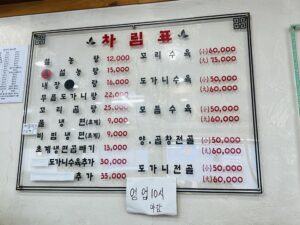 차림표
설농탕 12,000
특 설농탕 15,000
내장탕 16,000
우족도가니탕 22,000
꼬리곰탕 25,000
냉면(휴계) 9,000
비빔냉면(휴계) 9,000
초계냉면곱빼기 13,000
도가니수육추가 30,000
추가 35,000
꼬리수육 (小)60,000
(大)75,000
도가니수육 (小)50,000
(大)60,000
모듬수육 (小)50,000
(大)60,000
양.곱창전골 (小)50,000
(大)60,000
도가니전골 (小)50,000
(大)60,000
영업10시
마감